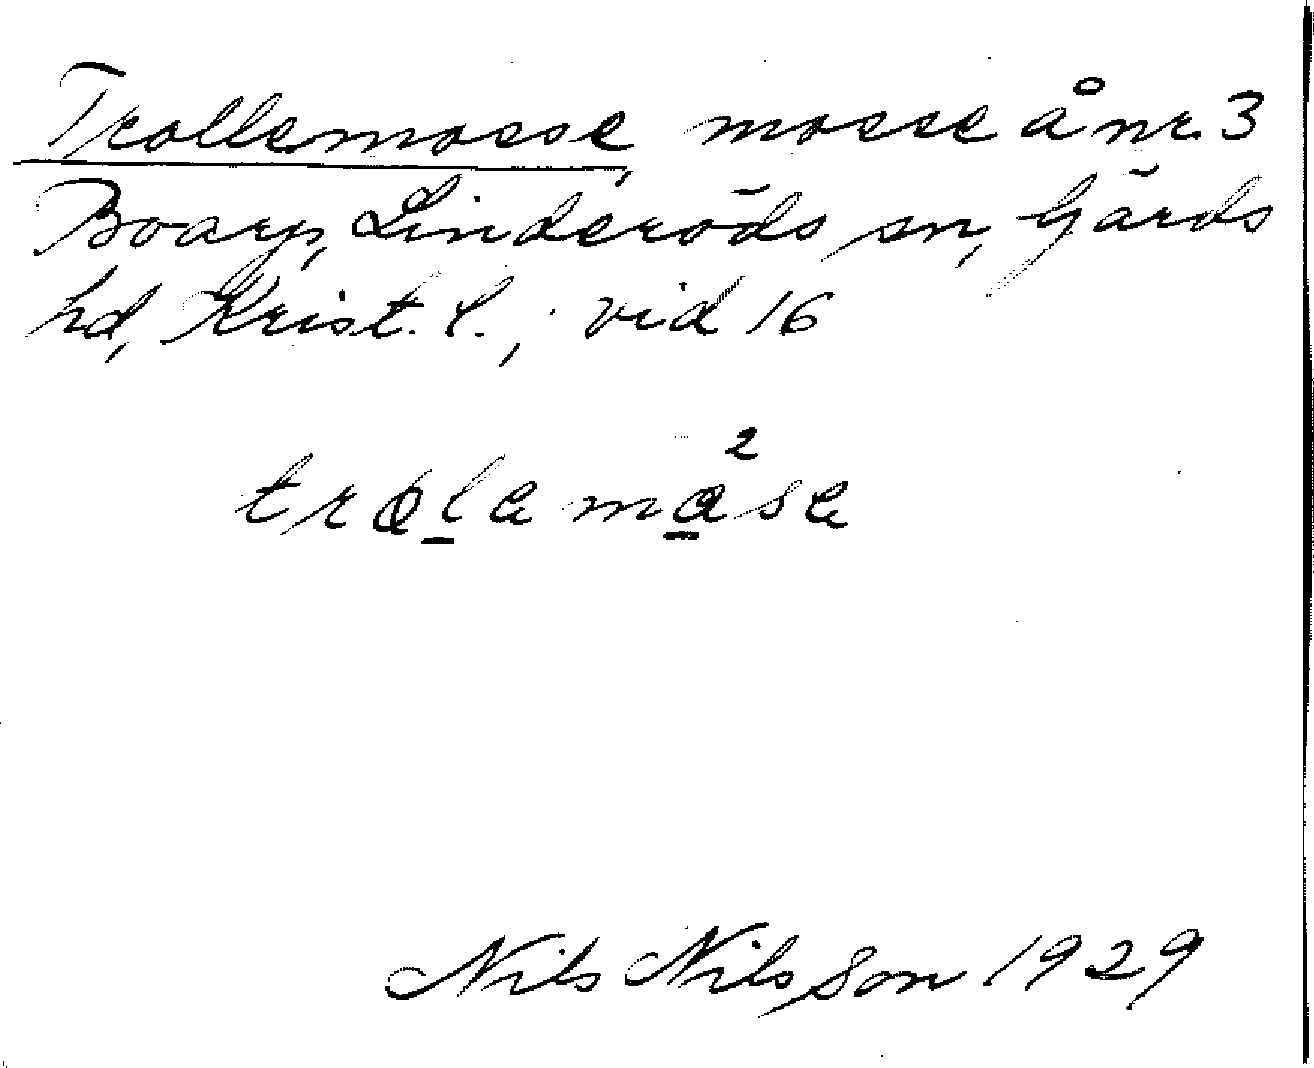 Trollemosse, mosse å nr. 3
Boarp, Linderöds sn, Gärds
hd, Krist. l., vid 16
Nils Nilsson 1929